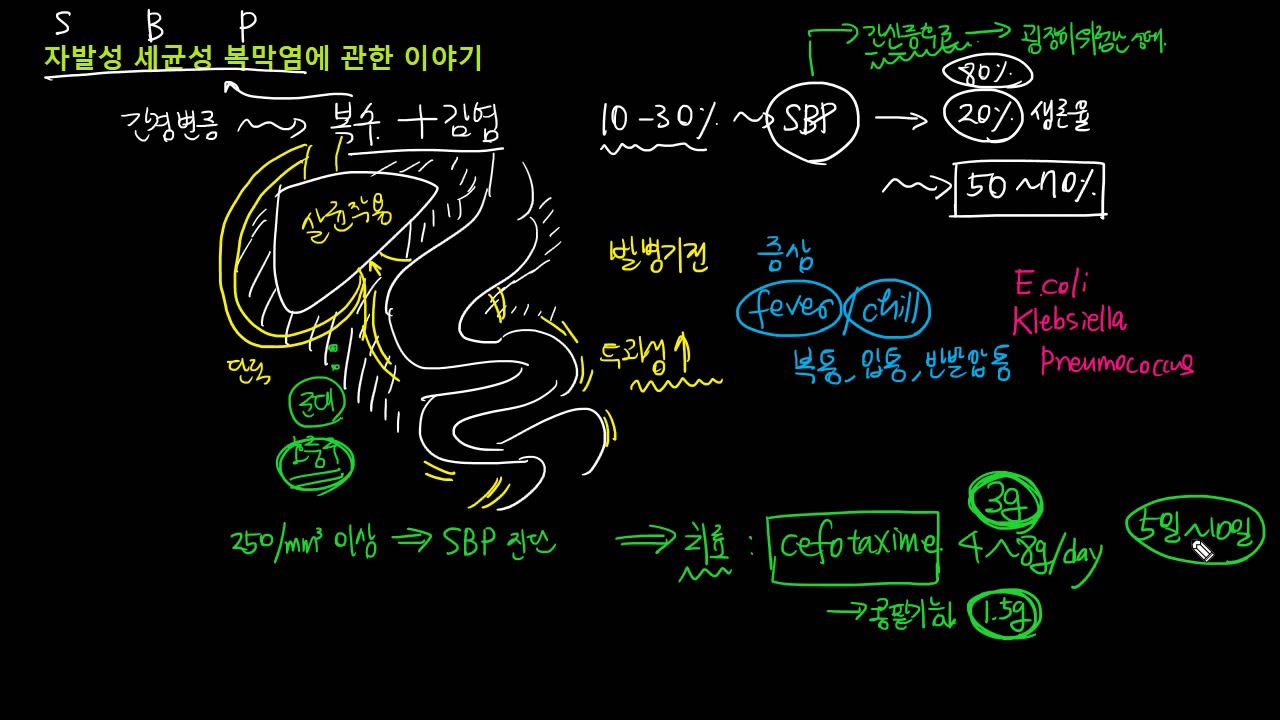 S B P
자발성 세균성 복막염에 관한 이야기
간경변증 복수 + 감염
10-30% SBP 20% 생존율
간신증후군 → 굉장히 위험한 상태.
80%
50~70%
살균작용
발병기전
증상
fever / chill
복통, 압통, 반발압통
E.coli
Klebsiella
Pneumococcus
투과성↑
단락
균대
호중구
250/mm³ 이상 ⇒ SBP 진단 ⇒ 치료 : cefotaxime 4~8g/day
3g
5일~10일
→ 콩팥기능 1.5g